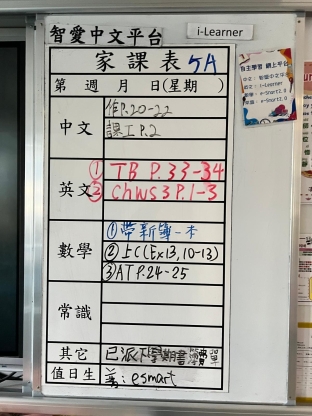 智愛中文平台
i-Learner
家課表 5A
第 週 月 日(星期 )
中文
作P.20-22
課工P.2
英文
① TB P.33-34
② Chws3 P.1-3
數學
①帶新簿一本
②上C(Ex13,10-13)
③AT P.24-25
常識
其它
已派下學期書簿費單
值日生
善: esmart
自主學習 網上平台
中文: 智愛中文平台
i-Learner
e-Smart2.0
e-Smart2.0